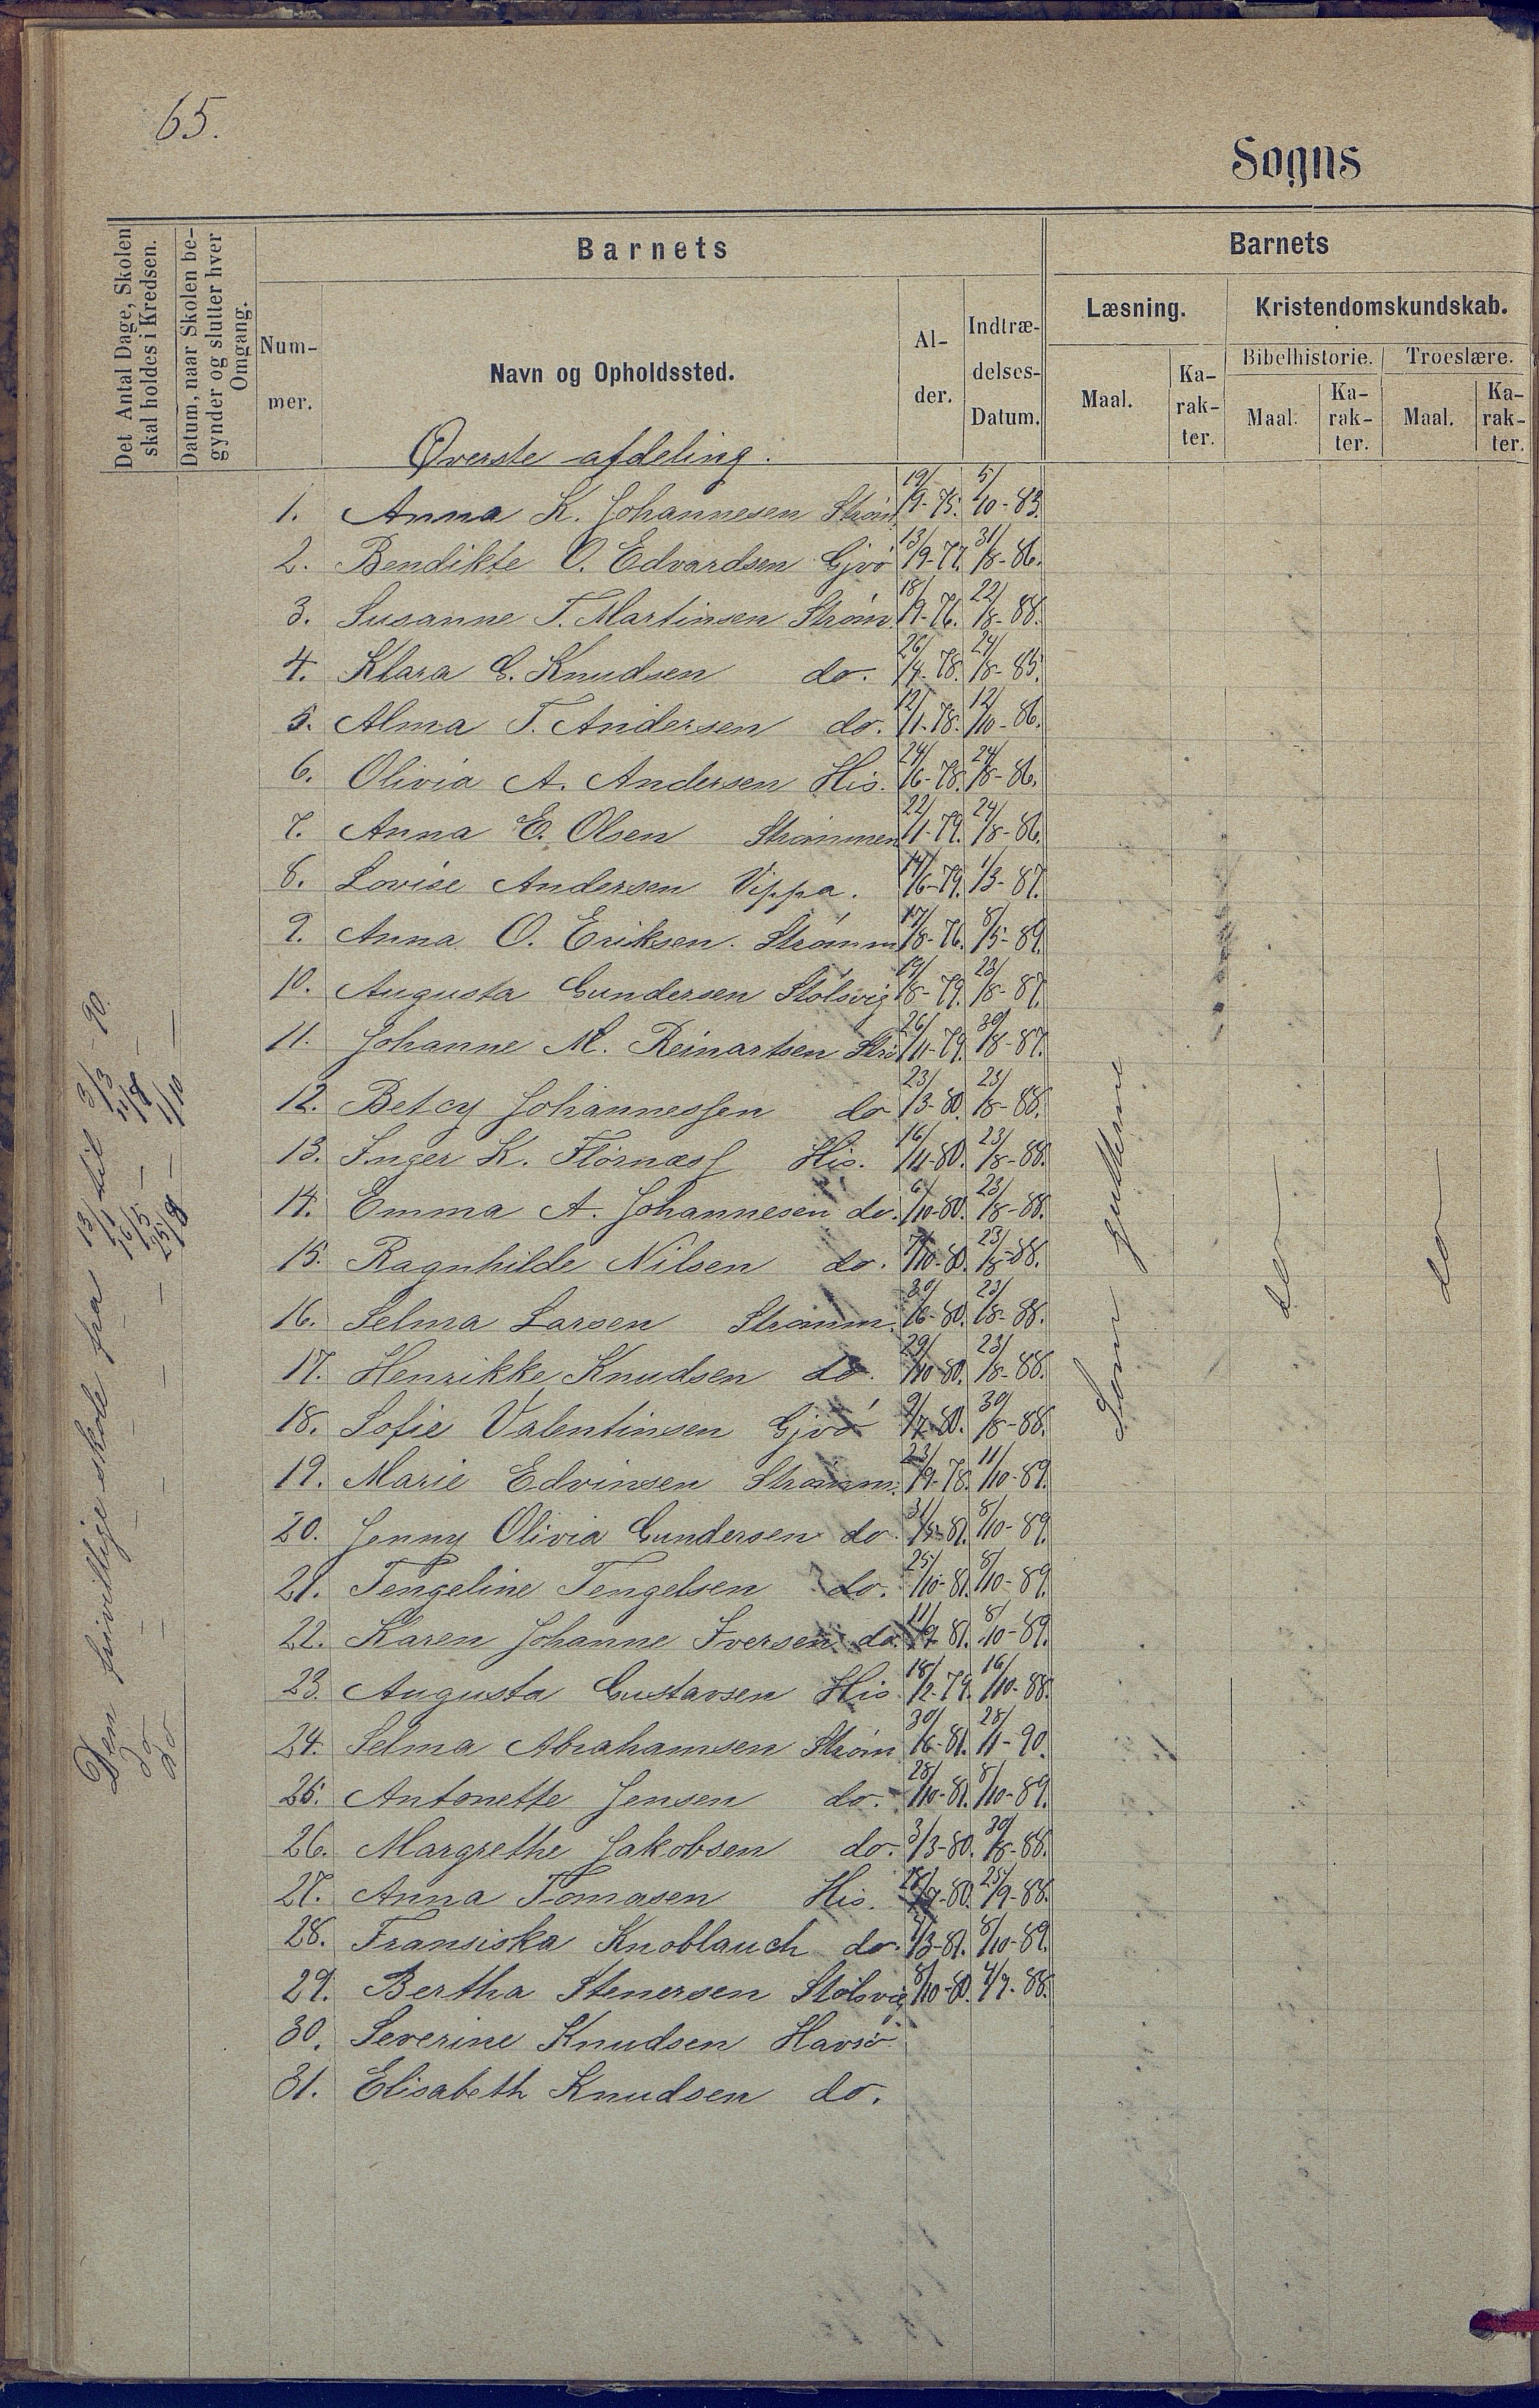 65.
Sogns
Det Antal Dage, Skolen
skal holdes i Kredsen.
Datum, naar Skolen be-
gynder og slutter hver
Omgang.
Barnets
Num-
mer.
Navn og Opholdssted.
Al-
der.
Indtræ-
delses-
Datum.
Barnets
Læsning.
Kristendomskundskab.
Maal.
Ka-
rak-
ter.
Bibelhistorie.
Troeslære.
Maal.
Ka-
rak-
ter.
Maal.
Ka-
rak-
ter.
Øverste afdeling.
1. Anna K. Johannesen Strøm 19/9-75. 5/10-83.
2. Bendikte O. Edvardsen Gjvø 13/9-77. 31/8-86.
3. Susanne T. Martinsen Strøm. 18/9-76. 22/8-88.
4. Klara C. Knudsen do. 26/4-78. 24/8-85.
5. Alma T. Andersen do. 12/11-78. 12/10-86.
6. Olivia A. Andersen His. 24/6-78. 24/8-86.
7. Anna E. Olsen Strømmen 22/1-79. 24/8-86.
8. Lovise Andersen Vippa. 14/6-79. 1/3-87.
9. Anna O. Eriksen. Strømm 17/8-76. 8/5-89.
10. Augusta Gundersen Stølsvig 19/8-79. 23/8-87.
11. Johanne M. Reinartsen Strø 26/11-79. 30/8-87.
12. Betcy Johannessen do 23/3-80. 23/8-88.
13. Inger K. Flørnæss His. 16/11-80. 23/8-88.
14. Emma A. Johannesen do. 6/10-80. 23/8-88.
15. Ragnhilde Nilsen do. 7/10-80. 23/8-88.
16. Selma Larsen Strømm. 30/6-80. 23/8-88.
17. Henrikke Knudsen do. 29/10-80. 23/8-88.
18. Sofie Valentinsen Gjvø 9/7-80. 30/8-88.
19. Marie Edvinsen Strømm. 23/9-78. 11/10-89.
20. Jenny Olivia Gundersen do. 31/5-81. 8/10-89.
21. Tengeline Tengelsen do. 25/10-81. 8/10-89.
22. Karen Johanne Iversen do. 11/9-81. 8/10-89.
23. Augusta Gustavsen His. 18/2-79. 16/10-88.
24. Selma Abrahamsen Strøm 30/6-81. 28/1-90.
25. Antonette Jensen do. 28/10-81. 8/10-89.
26. Margrethe Jakobsen do. 3/3-80. 30/8-88.
27. Anna Tomasen His. /7-80. 25/9-88.
28. Fransiska Knoblauch do. /3-81. 8/10-89.
29. Bertha Stenersen Stølsvig 8/10-80. 4/9-88.
30. Severine Knudsen Havsø
31. Elisabeth Knudsen do.
Den frivillige skole fra 13/1 til 3/3 - 90.
do - - - 16/5 - 11/8 -
do - - - 25/8 - 1/10 -
Som gutterne
do
do